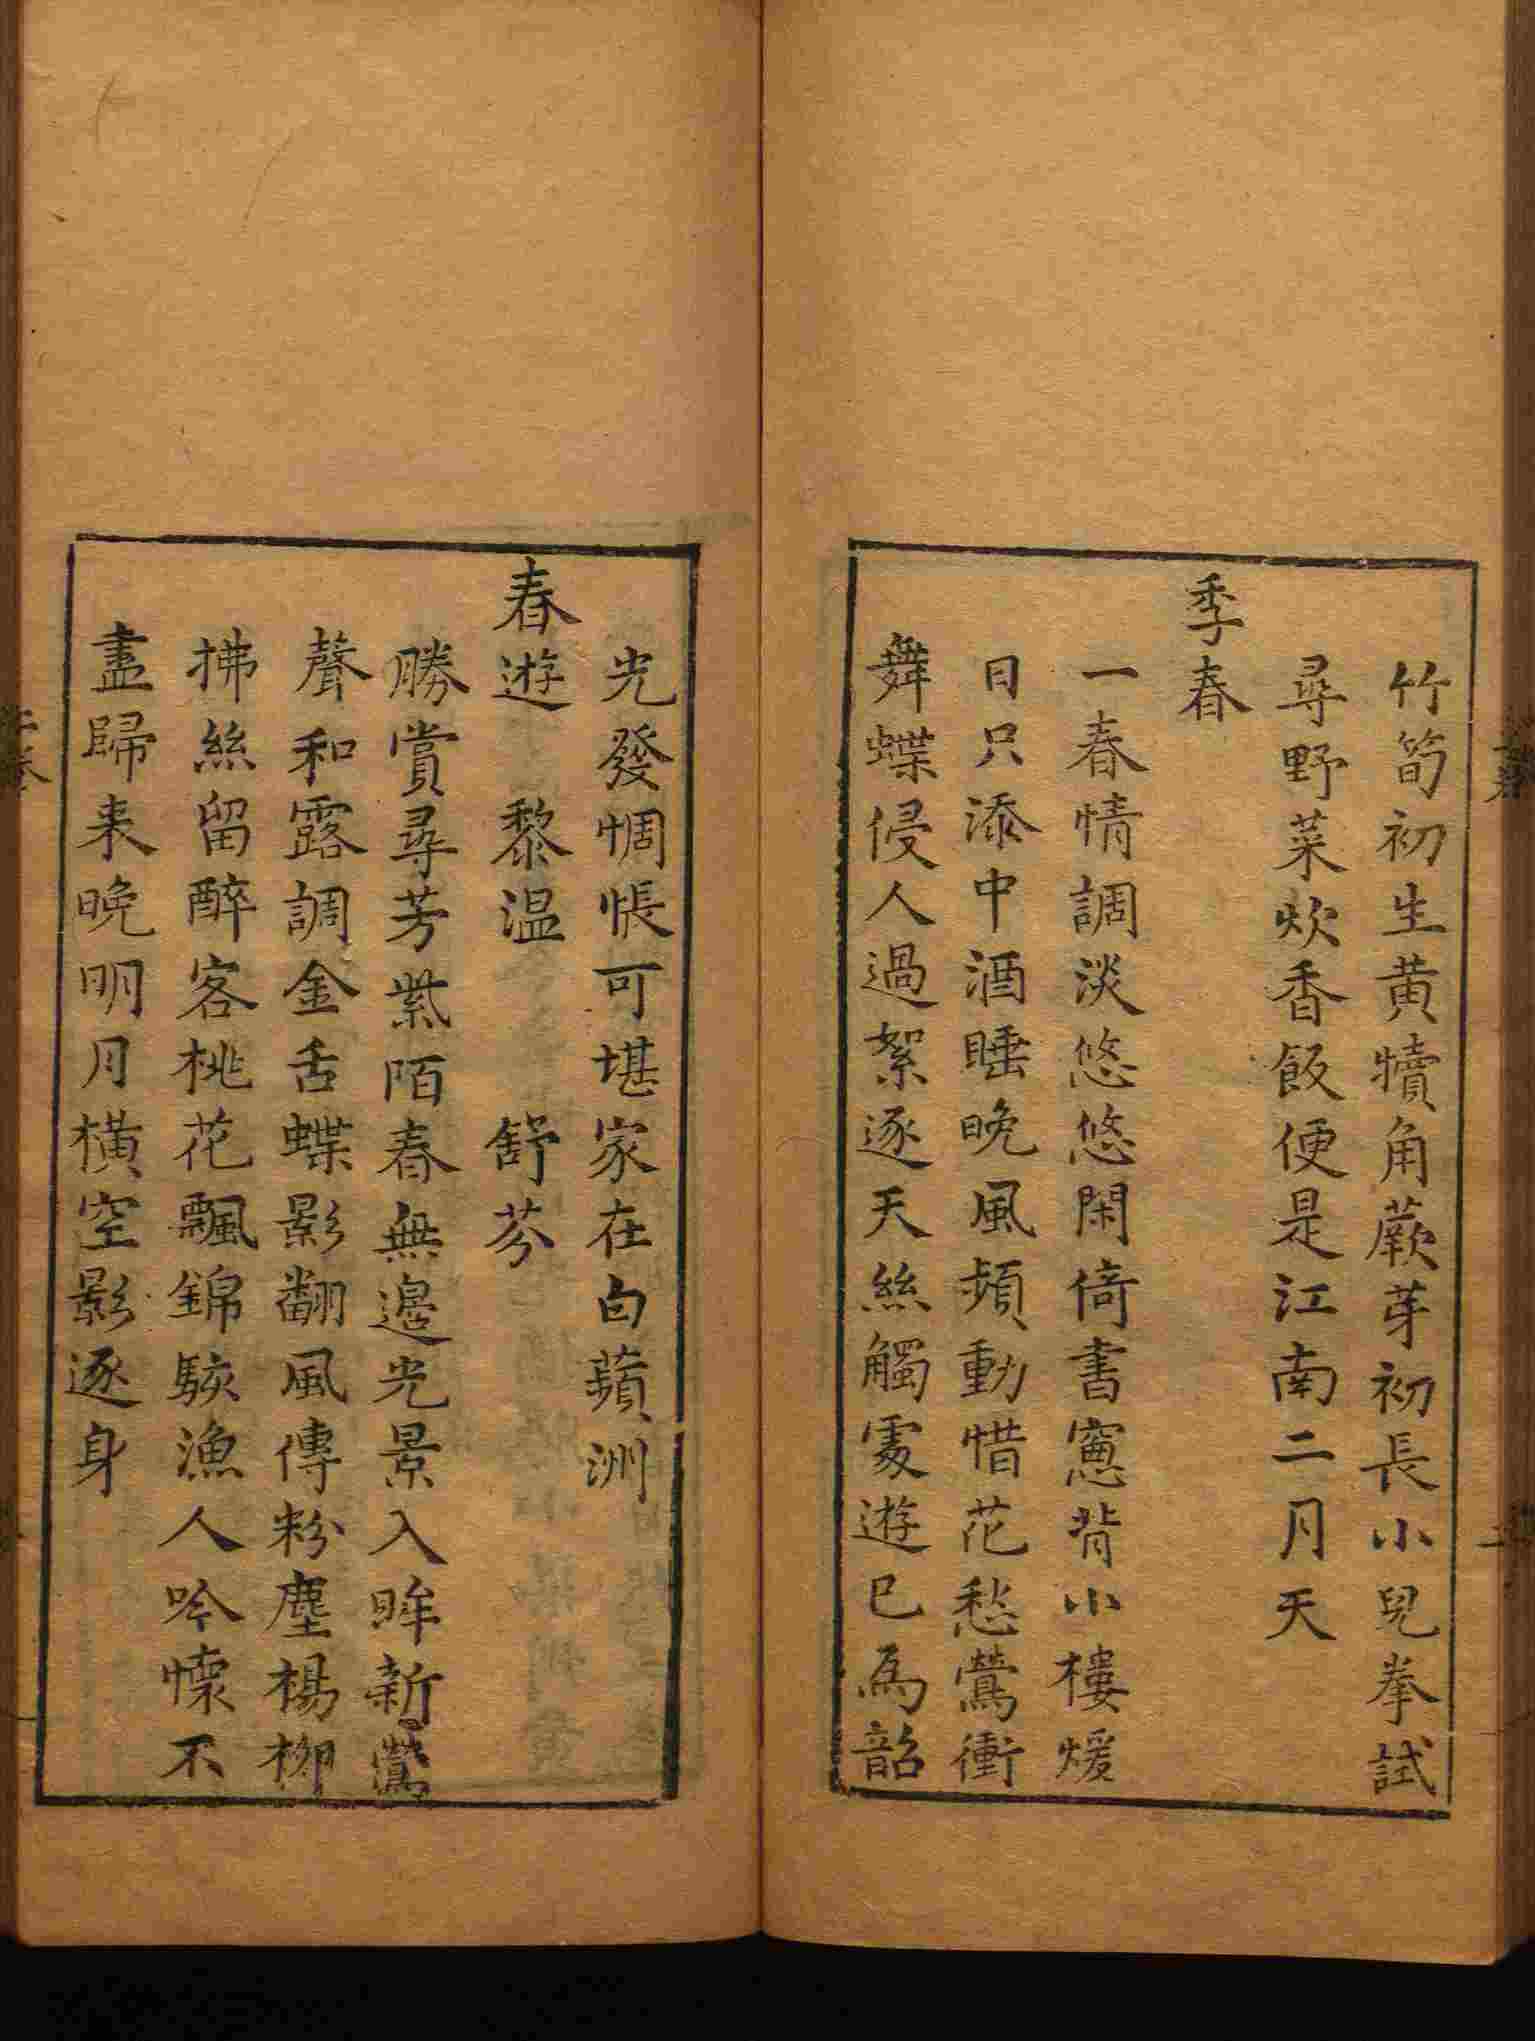 竹筍初生黄犢角蕨芽初長小兒拳試
尋野菜炊香飯便是江南二月天
季春
一春情調淡悠悠閑倚書窓背小樓煖
日只添中酒睡晚風頻動惜花愁鶯衝
舞蝶侵人過絮逐天絲觸處遊已為韶
光發惆悵可堪家在白蘋洲
春遊　黎温　舒芬
勝賞尋芳紫陌春無邊光景入眸新鶯
聲和露調金舌蝶影翻風傳粉塵楊柳
拂絲留醉客桃花飄錦駭漁人吟懷不
盡歸来晚明月横空影逐身